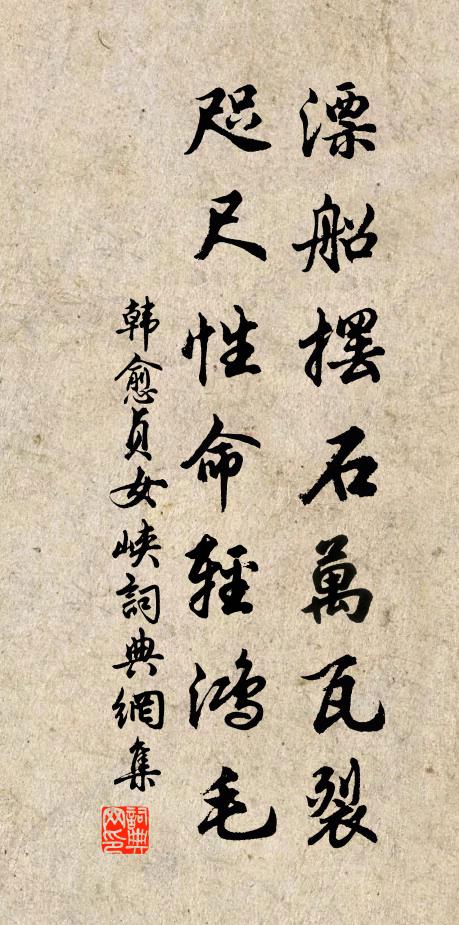 漂船擺石萬瓦裂
咫尺性命輕鴻毛
韓愈貞女峽詞典網集
詞典网印